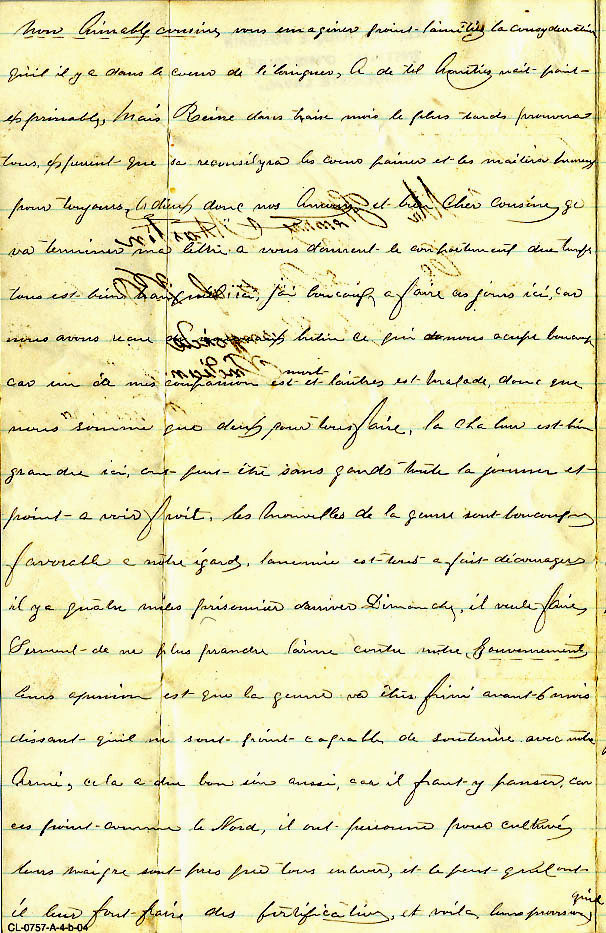 Mon Aimable cousine, vous imaginer point l'amitiés la consyderation
quil il y a dans le coeur de l'élonguer, A de tel Amitiés nait point
exprimable, Mais Reine dans traise mois le plus tards
tous, et que sa les coeur et les
pour toujours, donc nos Amours, et bien Cher cousine, ge
va terminer ma lettre a vous donnent le du temps
tous est bien tranquil ici, j'ai boucoup a faire ces jours ici, car
nous avons butin ce qui nous ocupe boucoup
car un de mes compagnion est mort et l'autres est Malade, donc que
nous somme que deux pour tous faire, la chaleur est bien
grandre ici, ont peut être sans gands toute la journer et
point a voir froit, les Nouvelles de la guerre sont boucoup
favorable a notre égards, l'anemie est tout a fait décourager
il y a quatre miles prisonnier d'arriver Dimanche, il veule faire
Serment de ne plus prandre l'arme contre notre Gouvernement
leurs opinion est que la guerre va être finni avant 6 mois
dissant quil ne sont point capable de soutenire avec notre
Armé, cela a du bon sen aussi, car il faut y panser, car
ces point comme le Nord, il ont personne pour cultivé
leurs naigre sont pres que tous enlever, et le peut quil ont
il leur faut faire des fortification, et voila leurs provision, quil
CL-0757-A-4-b-04